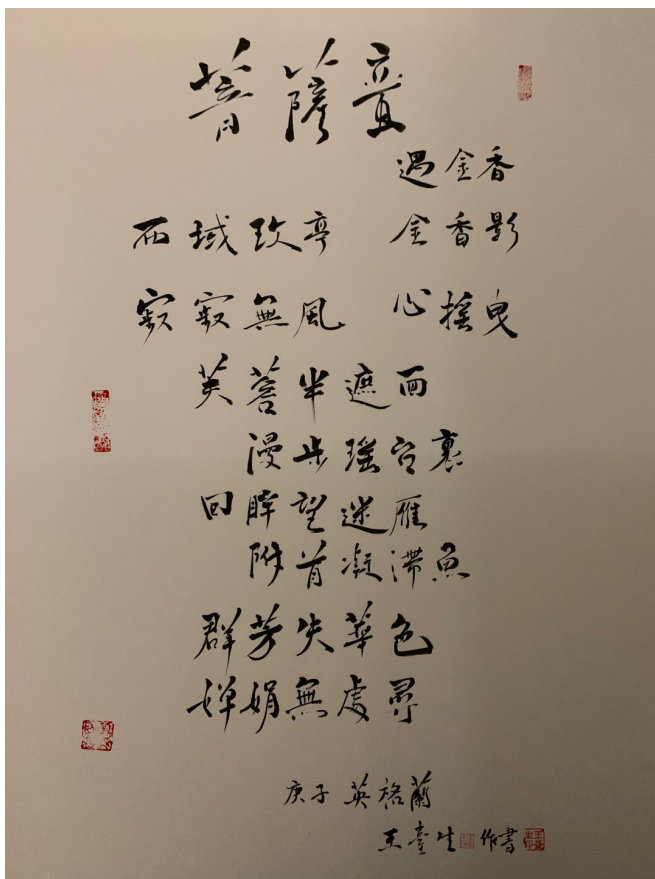 菩薩蠻
遇金香
西域玫亭 金香影
寂寂無風 心搖曳
芙蓉半遮面
漫步瑤台裏
回眸望迷雁
附首凝滯魚
群芳失華色
嬋娟無處尋
庚子 英格蘭
王臺生 作書